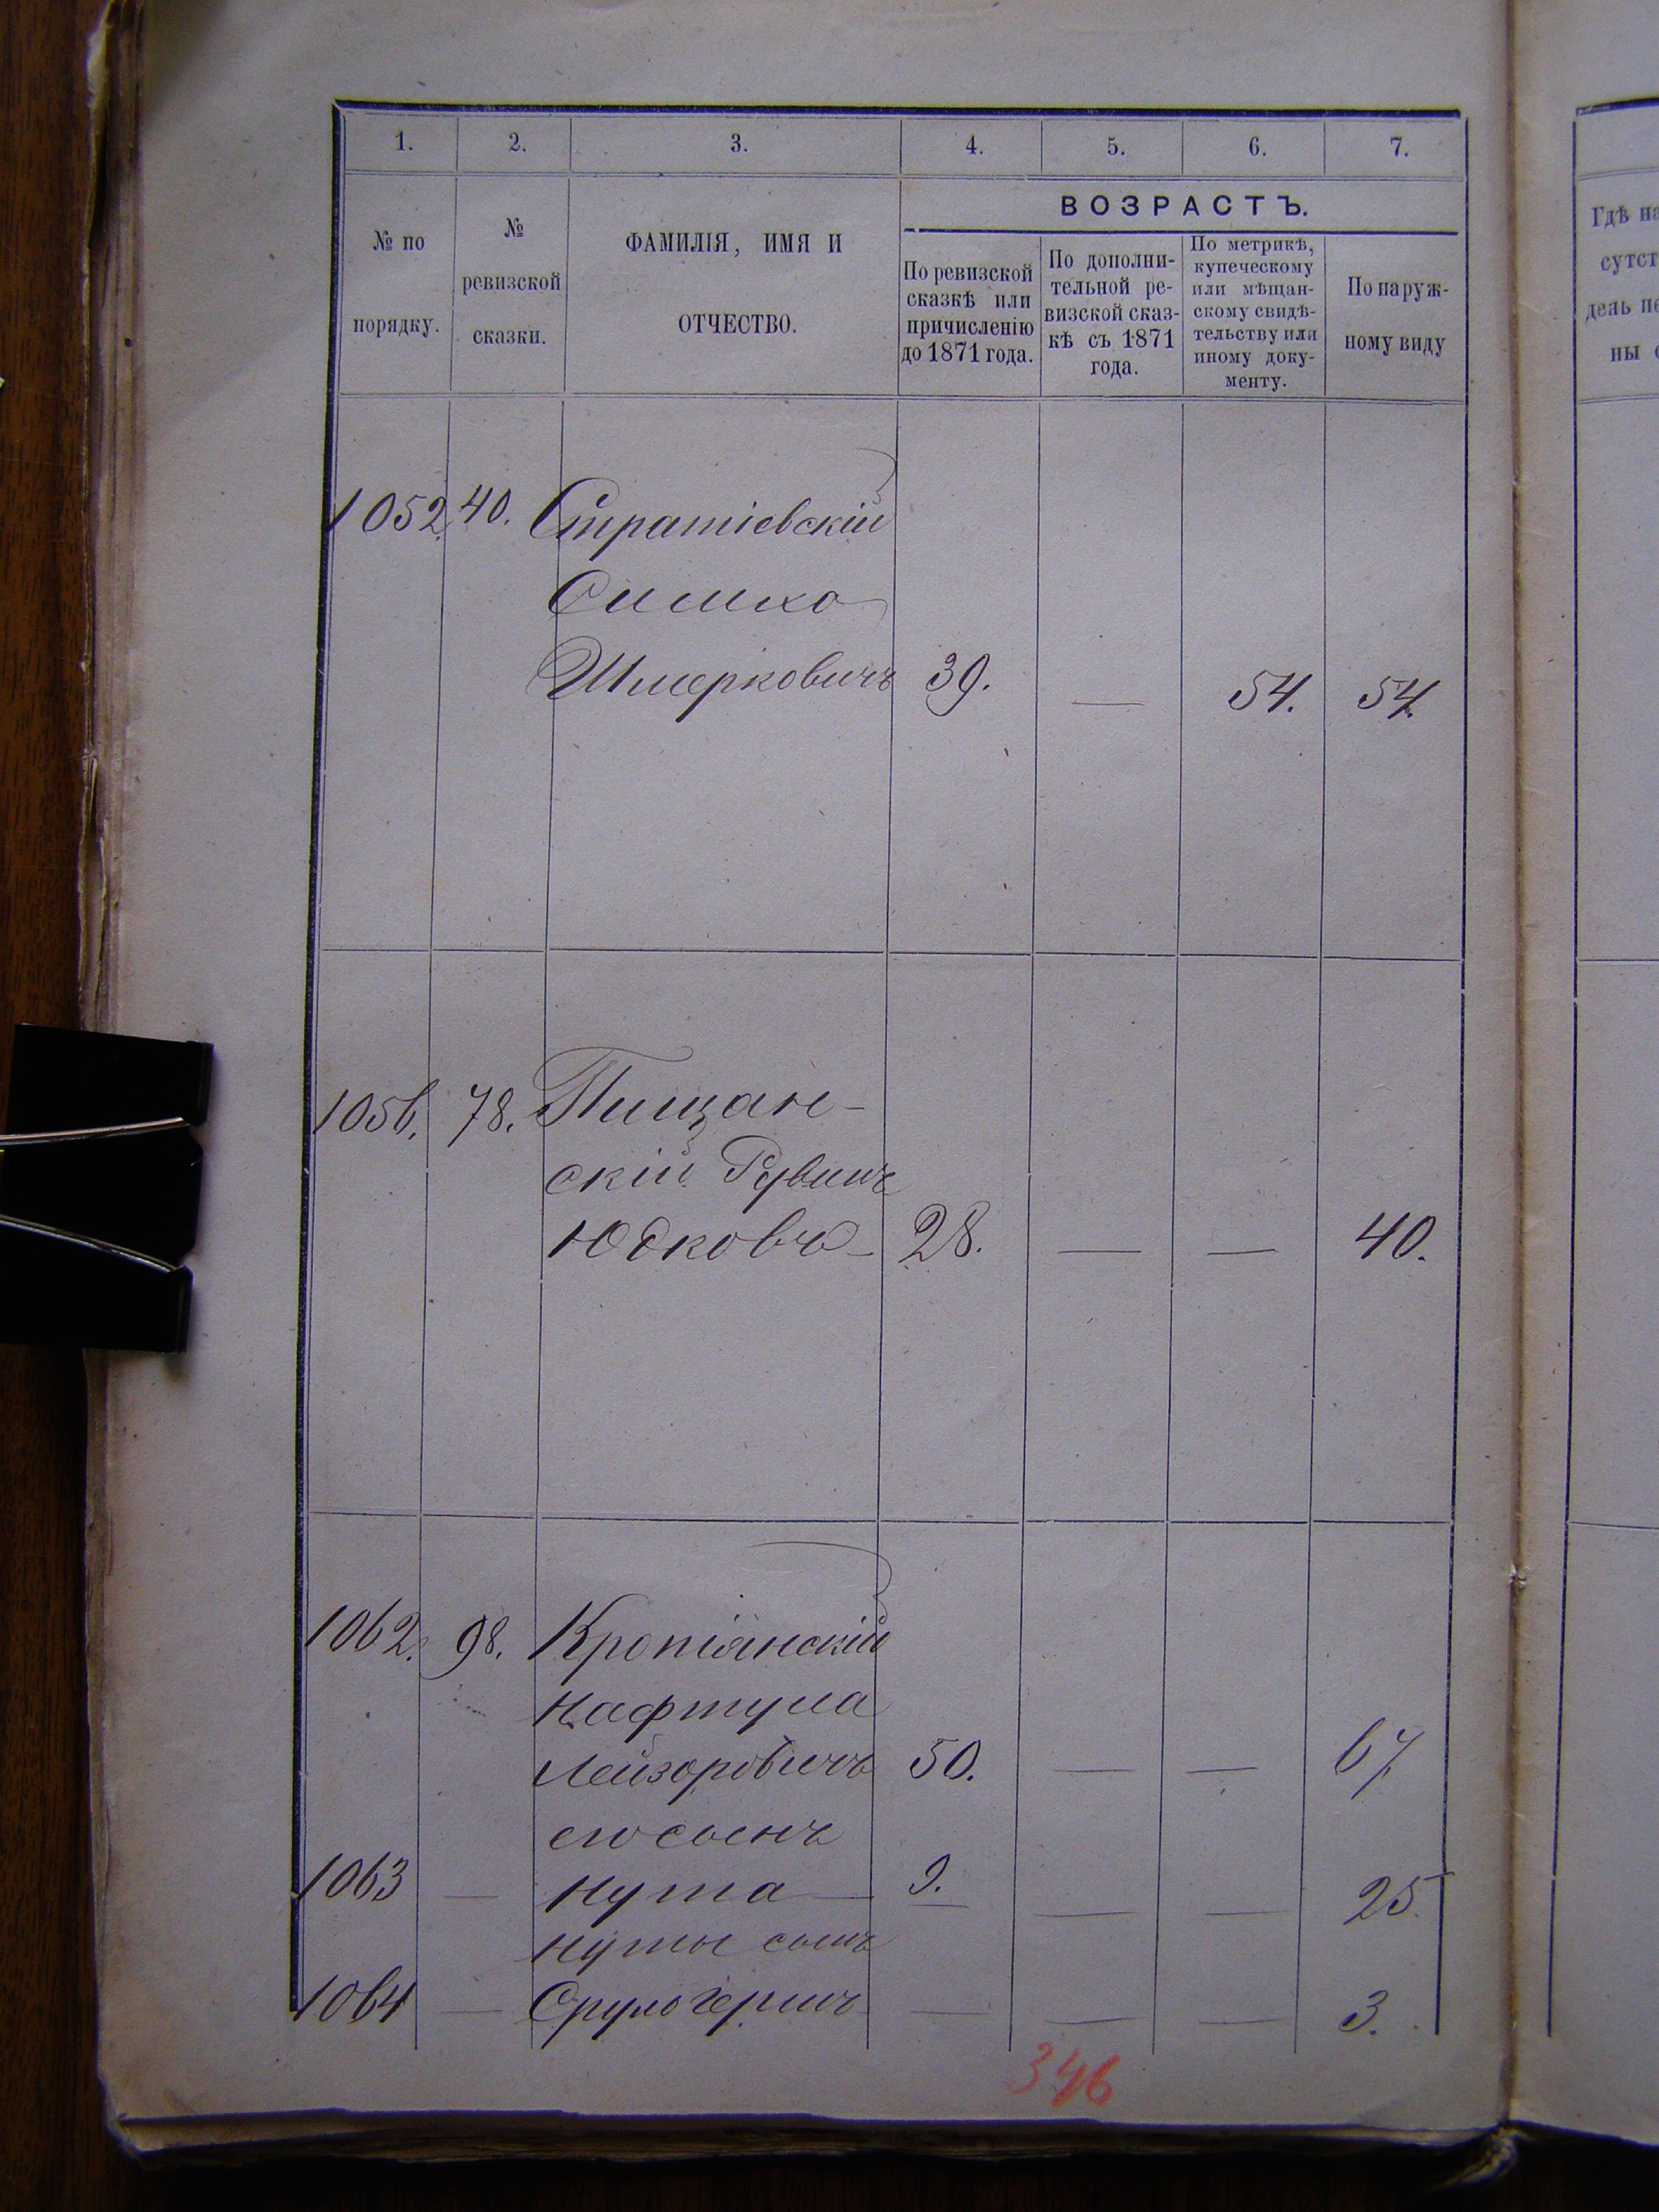 1. 2. 3. 4. 5. 6. 7.
№ по
порядку.
№
ревизской
сказки.
ФАМИЛІЯ, ИМЯ И
ОТЧЕСТВО.
ВОЗРАСТЪ.
По ревизской
сказкѣ или
причисленію
до 1871 года.
По дополни-
тельной ре-
визской сказ-
кѣ съ 1871
года.
По метрикѣ,
купеческому
или мѣщан-
скому свидѣ-
тельству или
иному доку-
менту.
По наруж-
ному виду
Гдѣ на
сутст
день пе
ны
1052. 40. Стратіевскій
Симхо
Шмерковичъ 39. — 54. 54.
1056. 78. Пищан-
скій Рувинъ
Юдковъ — 28. — — 40.
1062. 98. Кропіянскій
Нафтула
Лейзоровичъ 50. — — 67
его сынъ
1063 — Нута — 9. — — 25.
Нуты сынъ
1064 — Срульгершъ — — — 3.
346